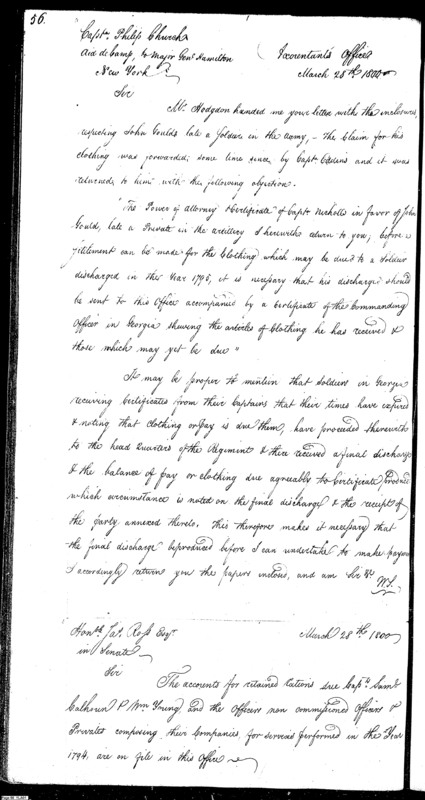 56.
Capt. Philip Church
Aid de Camp, to Major Genl Hamilton
New York
Accountants Office
March 28th 1800
Sir
Mr. Hodgdon handed me your letter with the inclosures,
respecting John Goulds late a soldier in the army, - The Claim for his
clothing was forwarded some time since by Capt. and it was
returned to him with the following objection.
"The Power of attorney & Certificate of Capt. Nicholls in favor of John
Gould, late a Private in the artillery I herewith return to you; before a
settlement can be made for the Clothing which may be due to a soldier
discharged in the Year 1795, it is necessary that his discharge should
be sent to this Office accompanied by a Certificate of the Commanding
Officer in Georgia shewing the articles of Clothing he has received &
those which may yet be due"
It may be proper to mention that soldiers in Georgia
receiving Certificates from their Captains that their times have expired
& noting that clothing or pay is due them, have proceeded therewith
to the head Quarters of the Regiment & there received a final discharge
& the balance of pay or clothing due agreeably to Certificate produced
which circumstance is noted on the final discharge & the receipt of
the party annexed thereto. this therefore makes it necessary that
the final discharge be produced before I can undertake to make payment
I accordingly return you the papers inclosed, and am Sir &c
W.S.
Honble Jas. Ross Esqr.
in Senate
March 28th 1800
Sir
The accounts for retained rations due Capts Saml
Calhoun & Wm Young and the Officers non commissioned Officers &
Privates composing their Companies, for services performed in the Year
1794, are on file in this Office